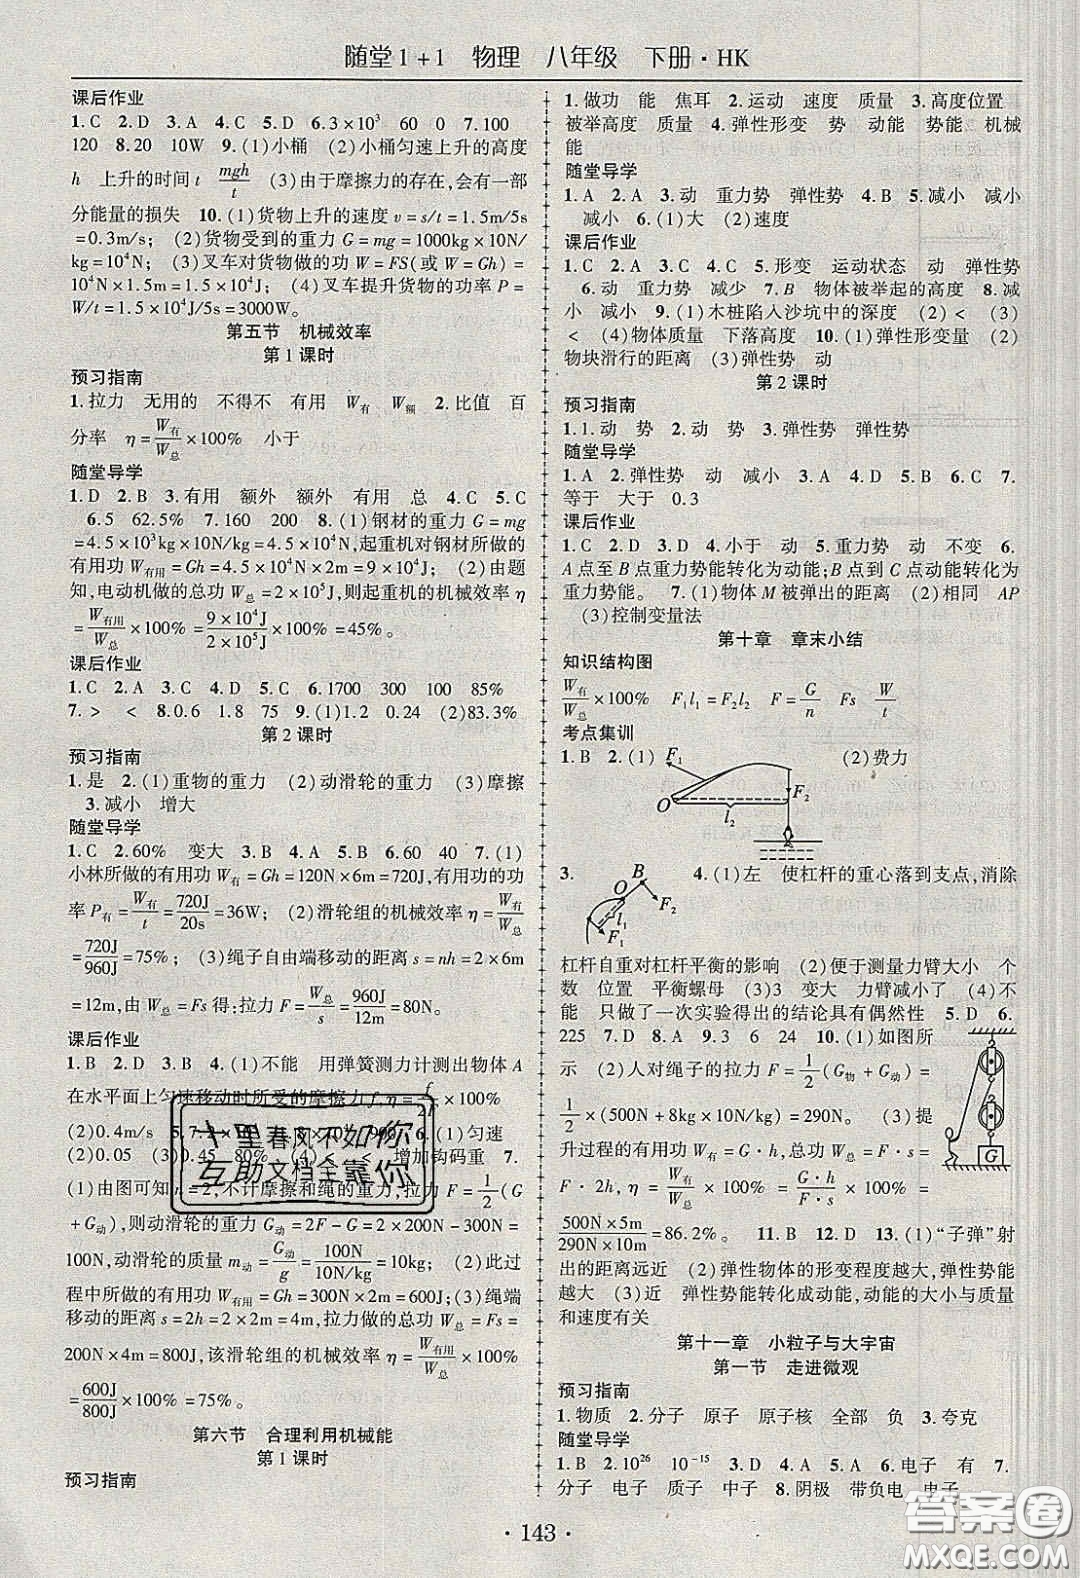 随堂1+1 物理 八年级 下册·HK
课后作业
1.C 2.D 3.A 4.C 5.D 6.3×10³ 60 0 7.100
120 8.20 10W 9.(1)小桶 (2)小桶匀速上升的高度
h 上升的时间t mgh/t (3)由于摩擦力的存在,会有一部
分能量的损失 10.(1)货物上升的速度v=s/t=1.5m/5s
=0.3m/s; (2)货物受到的重力G=mg=1000kg×10N/
kg=10⁴N; (3)叉车对货物做的功W=FS(或W=Gh)=
10⁴N×1.5m=1.5×10⁴J; (4)叉车提升货物的功率P=
W/t=1.5×10⁴J/5s=3000W。
第五节 机械效率
第1课时
预习指南
1.拉力 无用的 不得不 有用 W有 W额 2.比值 百
分率 η=W有/W总×100% 小于
随堂导学
1.D 2.B 3.有用 额外 额外 有用 总 4.C 5.C
6.5 62.5% 7.160 200 8.(1)钢材的重力G=mg
=4.5×10³kg×10N/kg=4.5×10⁴N,起重机对钢材所做的
有用功W有用=Gh=4.5×10⁴N×2m=9×10⁴J; (2)由题
知,电动机做的总功W总=2×10⁵J,则起重机的机械效率η
=W有用/W总×100%=9×10⁴J/2×10⁵J×100%=45%。
课后作业
1.C 2.A 3.C 4.C 5.C 6.1700 300 100 85%
7.> < 8.0.6 1.8 75 9.(1)1.2 0.24 (2)83.3%
第2课时
预习指南
1.是 2.(1)重物的重力 (2)动滑轮的重力 (3)摩擦
3.减小 增大
随堂导学
1.C 2.60% 变大 3.B 4.A 5.B 6.60 40 7.(1)
小林所做的有用功W有=Gh=120N×6m=720J,有用功的功
率P有=W有/t=720J/20s=36W; (2)滑轮组的机械效率η=W有/W总
=720J/960J=75%; (3)绳子自由端移动的距离s=nh=2×6m
=12m,由W总=Fs得:拉力F=W总/s=960J/12m=80N。
课后作业
1.B 2.D 3.B 4.(1)不能 用弹簧测力计测出物体A
在水平面上匀速移动时所受的摩擦力f,η=f/2F×100%
(2)0.4m/s 5.7.2×10 90% 6.(1)匀速
(2)0.05 (3)0.45 80% (4)< < 增加钩码重 7.
(1)由图可知n=2,不计摩擦和绳的重力,拉力F=1/2(G
+G动),则动滑轮的重力G动=2F-G=2×200N-300N=
100N,动滑轮的质量m动=G动/g=100N/10N/kg=10kg; (2)此过
程中所做的有用功W有用=Gh=300N×2m=600J;(3)绳端
移动的距离s=2h=2×2m=4m,拉力做的总功W总=Fs=
200N×4m=800J,该滑轮组的机械效率η=W有用/W总×100%
=600J/800J×100%=75%。
第六节 合理利用机械能
第1课时
预习指南
1.做功 能 焦耳 2.运动 速度 质量 3.高度位置
被举高度 质量 4.弹性形变 势 动能 势能 机械
能
随堂导学
1.A 2.A 3.动 重力势 弹性势 4.B 5.减小 减小
减小 6.(1)大 (2)速度
课后作业
1.C 2.C 3.C 4.C 5.形变 运动状态 动 弹性势
6.动 重力势 减少 7.B 物体被举起的高度 8.减小
减小 减小 9.(1)木桩陷入沙坑中的深度 (2)< (3)
< (4)物体质量 下落高度 10.(1)弹性形变量 (2)
物块滑行的距离 (3)弹性势 动
第2课时
预习指南
1.1.动 势 2.动 势 3.弹性势 弹性势
随堂导学
1.A 2.弹性势 动 减小 3.A 4.D 5.C 6.C 7.
等于 大于 0.3
课后作业
1.C 2.D 3.D 4.小于 动 5.重力势 动 不变 6.
A点至B点重力势能转化为动能;B点到C点动能转化为
重力势能。 7.(1)物体M被弹出的距离 (2)相同 AP
(3)控制变量法
第十章 章末小结
知识结构图
W有/W总×100% F₁l₁=F₂l₂ F=G/n Fs W/t
考点集训
1.B 2.(1) (2)费力
F₁
O
l₂
F₂
3. 4.(1)左 使杠杆的重心落到支点,消除
O
B
F₂
l₁
F₁
杠杆自重对杠杆平衡的影响 (2)便于测量力臂大小 个
数 位置 平衡螺母 (3)3 变大 力臂减小了 (4)不
能 只做了一次实验得出的结论具有偶然性 5.D 6.
225 7.D 8.A 9.3 6 24 10.(1)如图所
示 (2)人对绳子的拉力F=1/2(G物+G动)=
1/2×(500N+8kg×10N/kg)=290N。 (3)提
升过程的有用功W有=G·h,总功W总=F·s=
F·2h,η=W有/W总×100%=G·h/F·s×100%=
500N×5m/290N×10m=86.2%。 11.B 12.D 13.(1)“子弹”射
出的距离远近 (2)弹性物体的形变程度越大,弹性势能
越大 (3)近 弹性势能转化成动能,动能的大小与质量
和速度有关
G
第十一章 小粒子与大宇宙
第一节 走进微观
预习指南
1.物质 2.分子 原子 原子核 全部 负 3.夸克
随堂导学
1.B 2.10²⁶ 10⁻¹⁵ 3.D 4.A 5.A 6.电子 有 7.
分子 电子 质子 中子 8.阴极 带负电 电子
十里春风不如你
互助文档全靠你
·143·
答案圈
MXQE.COM